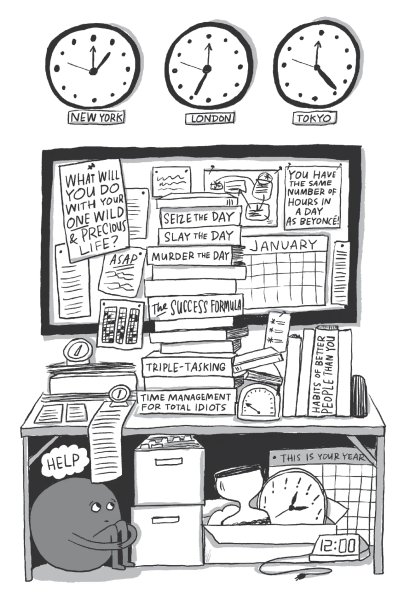 NEW YORK
LONDON
TOKYO
WHAT WILL
YOU DO
WITH YOUR
ONE WILD
& PRECIOUS
LIFE?
YOU HAVE
THE SAME
NUMBER OF
HOURS IN
A DAY
AS BEYONCÉ!
SEIZE THE DAY
SLAY THE DAY
MURDER THE DAY
ASAP
JANUARY
The SUCCESS FORMULA
TRIPLE-TASKING
TIME MANAGEMENT
FOR TOTAL IDIOTS
HABITS OF BETTER
PEOPLE THAN YOU
HELP
THIS IS YOUR YEAR
12:00